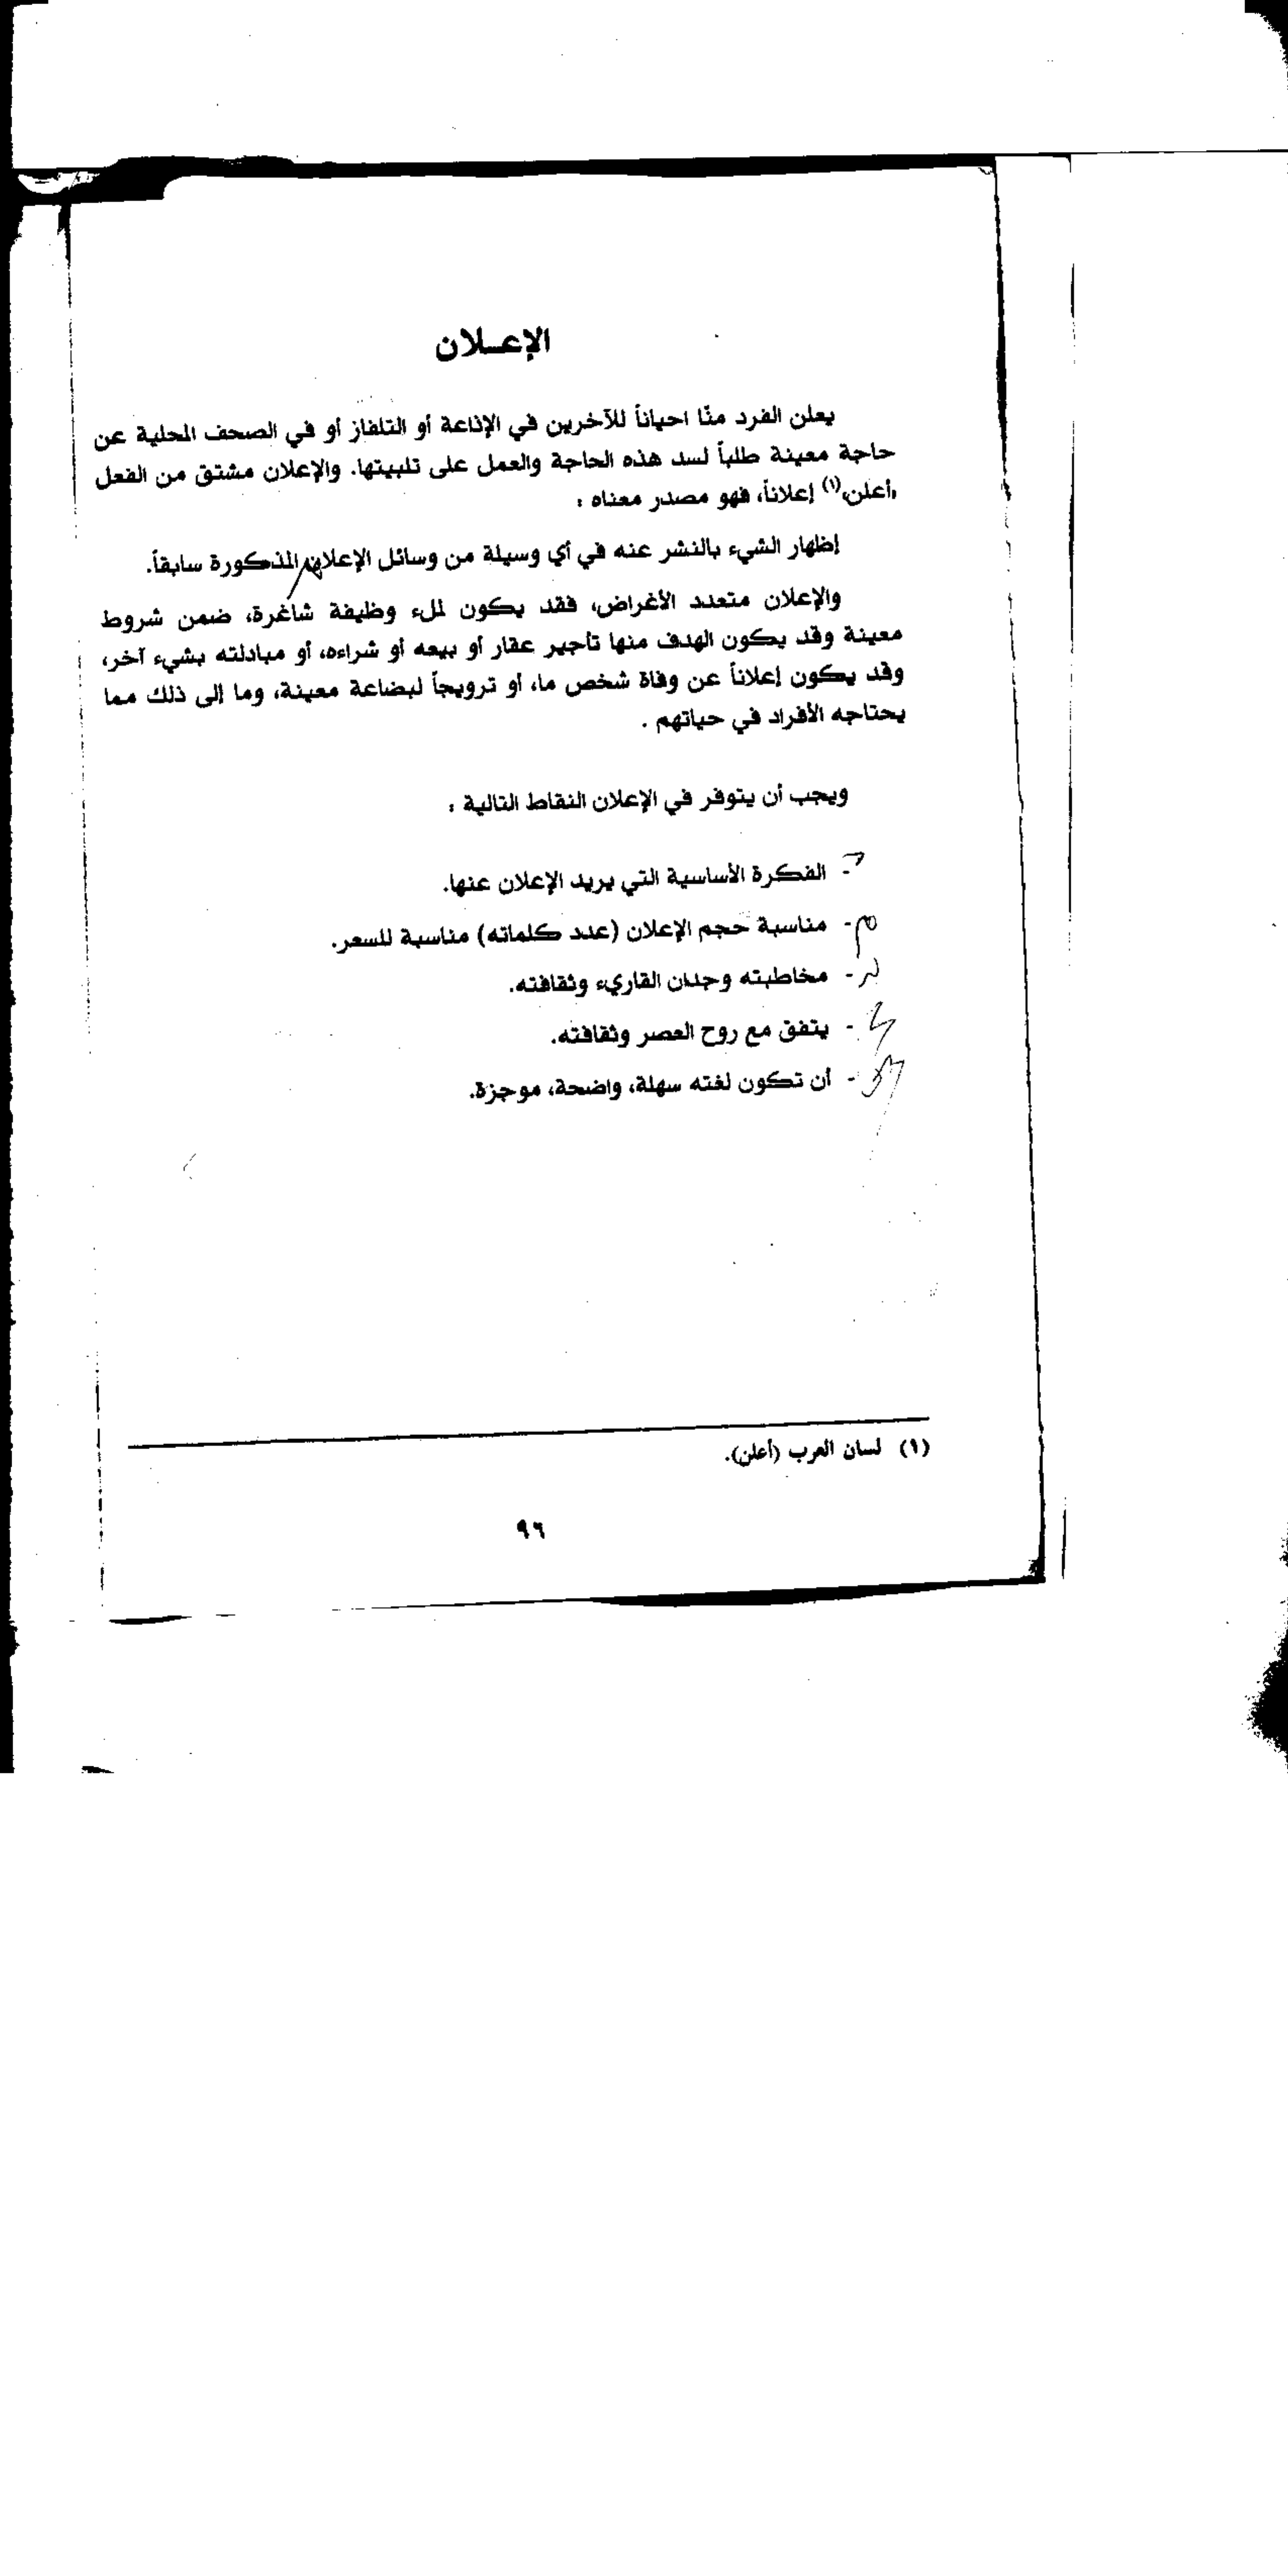 الإعـلان
يعلن الفرد منّا احياناً للآخرين في الإذاعة أو التلفاز أو في الصحف المحلية عن
حاجة معينة طلباً لسد هذه الحاجة والعمل على تلبيتها. والإعلان مشتق من الفعل
«أعلن»(١) إعلاناً، فهو مصدر معناه :
إظهار الشيء بالنشر عنه في أي وسيلة من وسائل الإعلان المذكورة سابقاً.
والإعلان متعدد الأغراض، فقد يكون لملء وظيفة شاغرة، ضمن شروط
معينة وقد يكون الهدف منها تأجير عقار أو بيعه أو شراءه، أو مبادلته بشيء آخر،
وقد يكون إعلاناً عن وفاة شخص ما، أو ترويجاً لبضاعة معينة، وما إلى ذلك مما
يحتاجه الأفراد في حياتهم .
ويجب أن يتوفر في الإعلان النقاط التالية :
- الفكرة الأساسية التي يريد الإعلان عنها.
- مناسبة حجم الإعلان (عدد كلماته) مناسبة للسعر.
- مخاطبته وجدان القاريء وثقافته.
- يتفق مع روح العصر وثقافته.
- أن تكون لغته سهلة، واضحة، موجزة.
(١) لسان العرب (أعلن).
٩٦